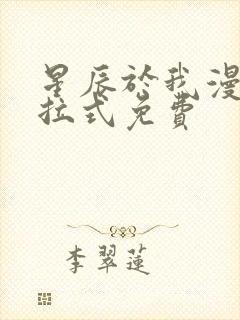 星辰於我漫
拉式免費
李翠蓮